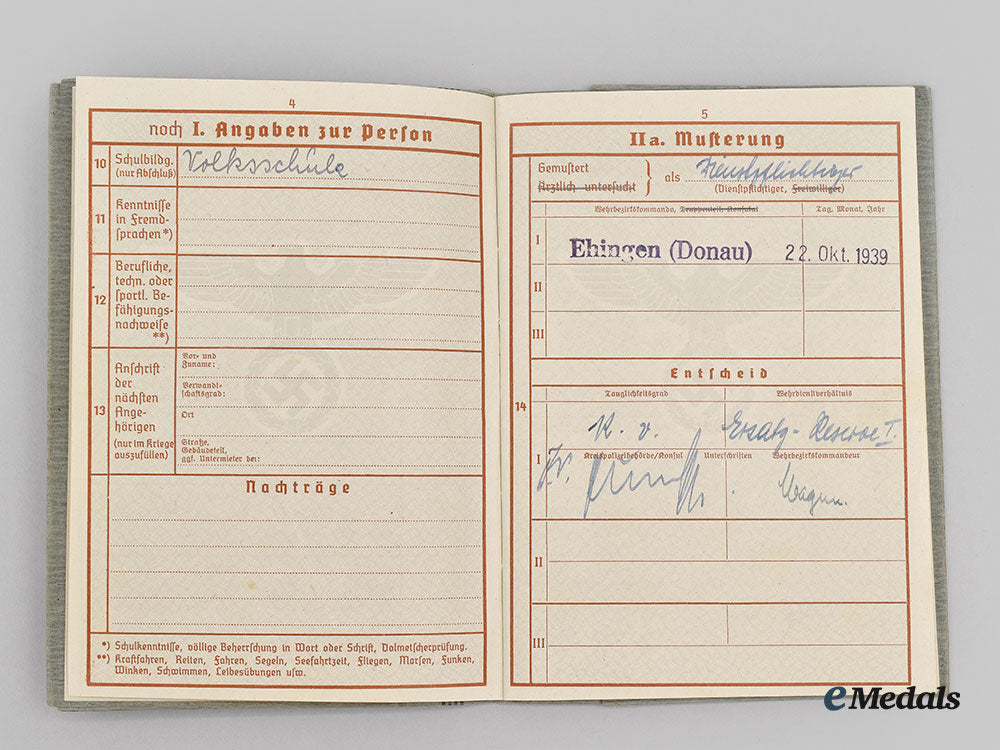 4
noch I. Angaben zur Person
10 Schulbildg. (nur Abschluß) Volksschule
11 Kenntnisse in Fremdsprachen*)
12 Berufliche, techn. oder sportl. Befähigungsnachweise **)
13 Anschrift der nächsten Angehörigen (nur im Kriege auszufüllen)
Vor- und Zuname:
Verwandtschaftsgrad:
Ort
Straße, Gebäudeteil, ggf. Untermieter bei:
Nachträge
*) Schulkenntnisse, völlige Beherrschung in Wort oder Schrift, Dolmetscherprüfung.
**) Kraftfahren, Reiten, Fahren, Segeln, Seefahrtzeit, Fliegen, Morsen, Funken,
Winken, Schwimmen, Leibesübungen usw.
5
IIa. Musterung
Gemustert
Ärztlich untersucht
als Dienstpflichtiger
(Dienstpflichtiger, Freiwilliger)
Wehrbezirkskommando, Truppenteil, Konsulat Tag, Monat, Jahr
I Ehingen (Donau) 22. Okt. 1939
II
III
Entscheid
14
Tauglichkeitsgrad Wehrdienstverhältnis
K. v. Ersatz-Reserve I.
I Kreispolizeibehörde/Konsul Unterschriften Wehrbezirkskommandeur
II
III
eMedals